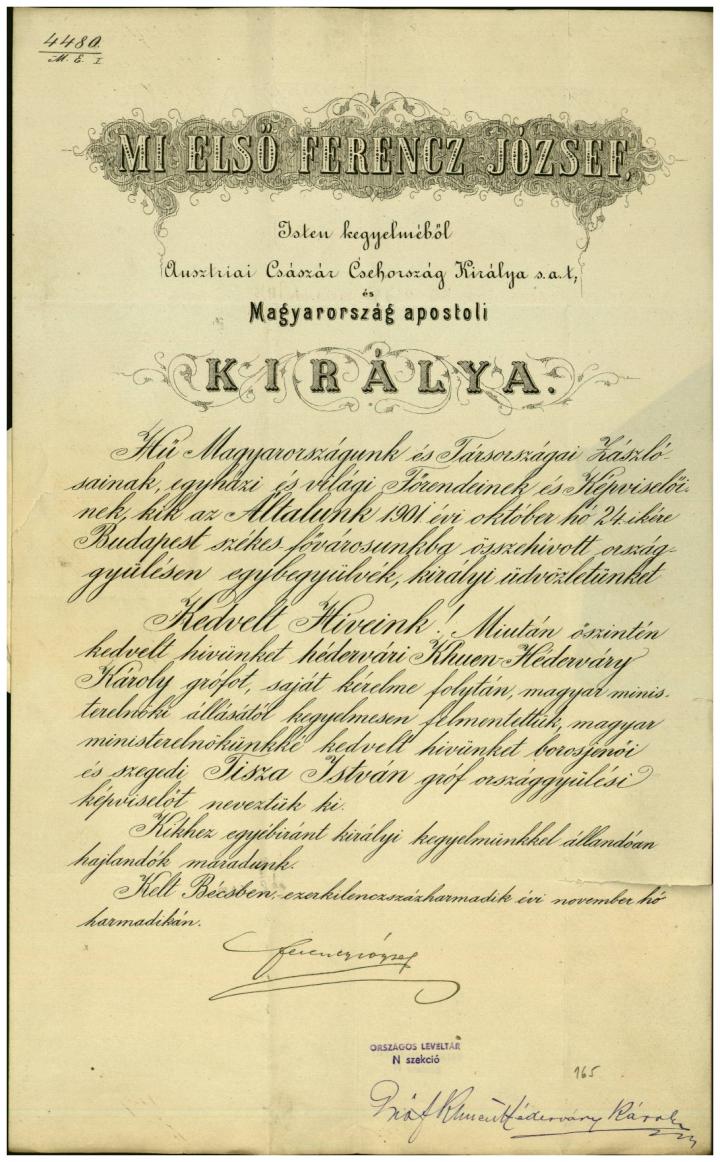 4480.
M. E. I
MI ELSŐ FERENCZ JÓZSEF,
Isten kegyelméből
Ausztriai Császár Csehország Királya s.a.t,
és
Magyarország apostoli
KIRÁLYA.
Hű Magyarországunk és Társországai Zászló-
sainak, egyházi és világi Főrendeinek és Képviselői-
nek, kik az Általunk 1901 évi október hó 24-ikére
Budapest székes fővárosunkba összehivott ország-
gyűlésen egybegyülvék, királyi üdvözletünket
Kedvelt Híveink! Miután őszintén
kedvelt hivünket hédervári Khuen-Héderváry
Károly grófot, saját kérelme folytán, magyar minis-
terelnöki állásától kegyelmesen felmentettük, magyar
ministerelnökünkké kedvelt hivünket borosjenői
és szegedi Tisza István gróf országgyülési
képviselőt neveztük ki.
Kikhez egyébiránt királyi kegyelmünkkel állandóan
hajlandók maradunk.
Kelt Bécsben, ezerkilenczszázharmadik évi november hó
harmadikán.
Ferencz József
ORSZÁGOS LEVÉLTÁR
N szekció
165
Gróf Khuen Héderváry Károly